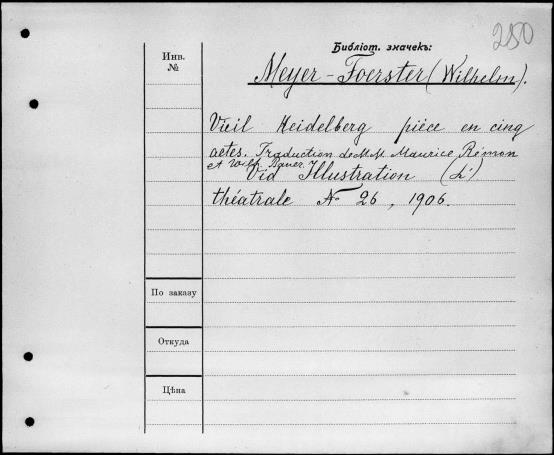 250
Библіот. значекъ:
Инв.
№
Meyer-Foerster (Wilhelm).
Vieil Heidelberg pièce en cinq
actes. Traduction de MM Maurice Rémon
et Wilh. Bauer.
Vid Illustration (L')
théatrale № 26, 1906.
По заказу
Откуда
Цѣна